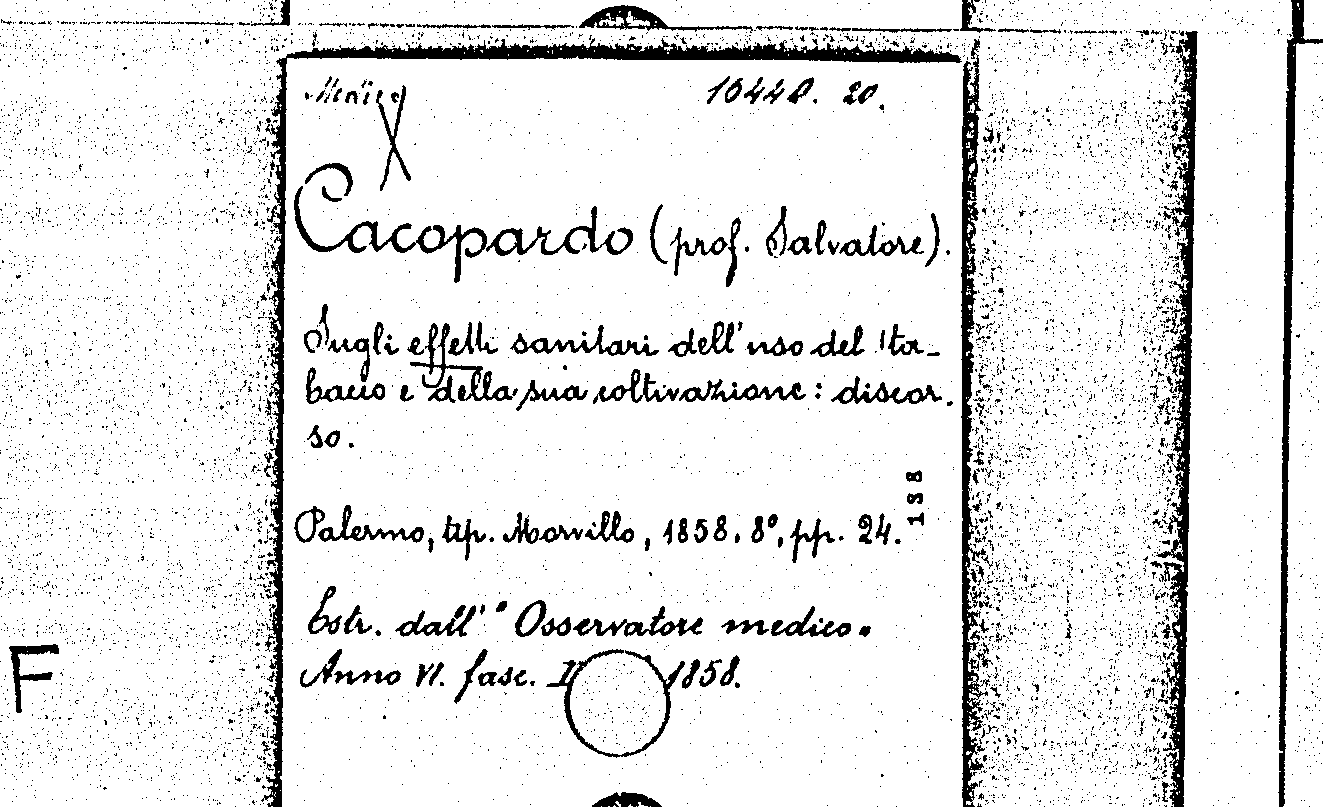 10448. 20.
Cacopardo (prof. Salvatore).
Sugli effetti sanitari dell'uso del ta-
bacco e della sua coltivazione: discor.
so.
138
Palermo, tip. Morvillo, 1858. 8°, pp. 24.
Estr. dall' "Osservatore medico"
Anno VI. fasc. 1858.
F